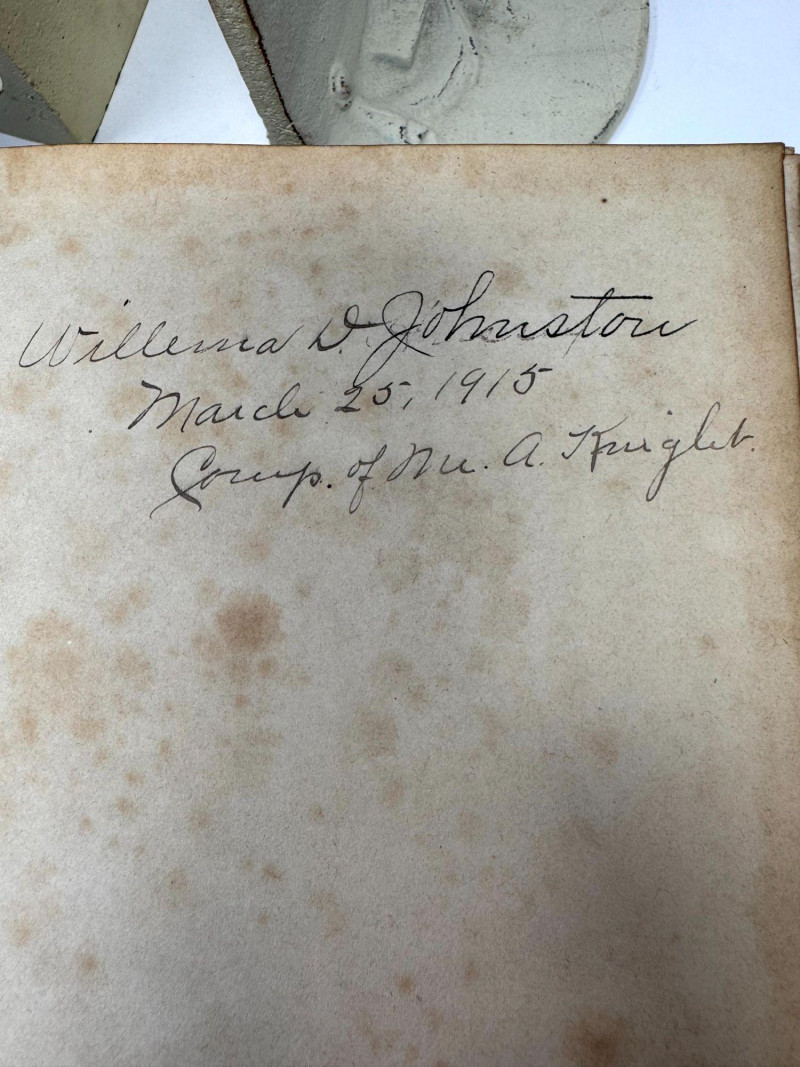 Willema D. Johnston
March 25, 1915
Comp. of M. A. Knight.